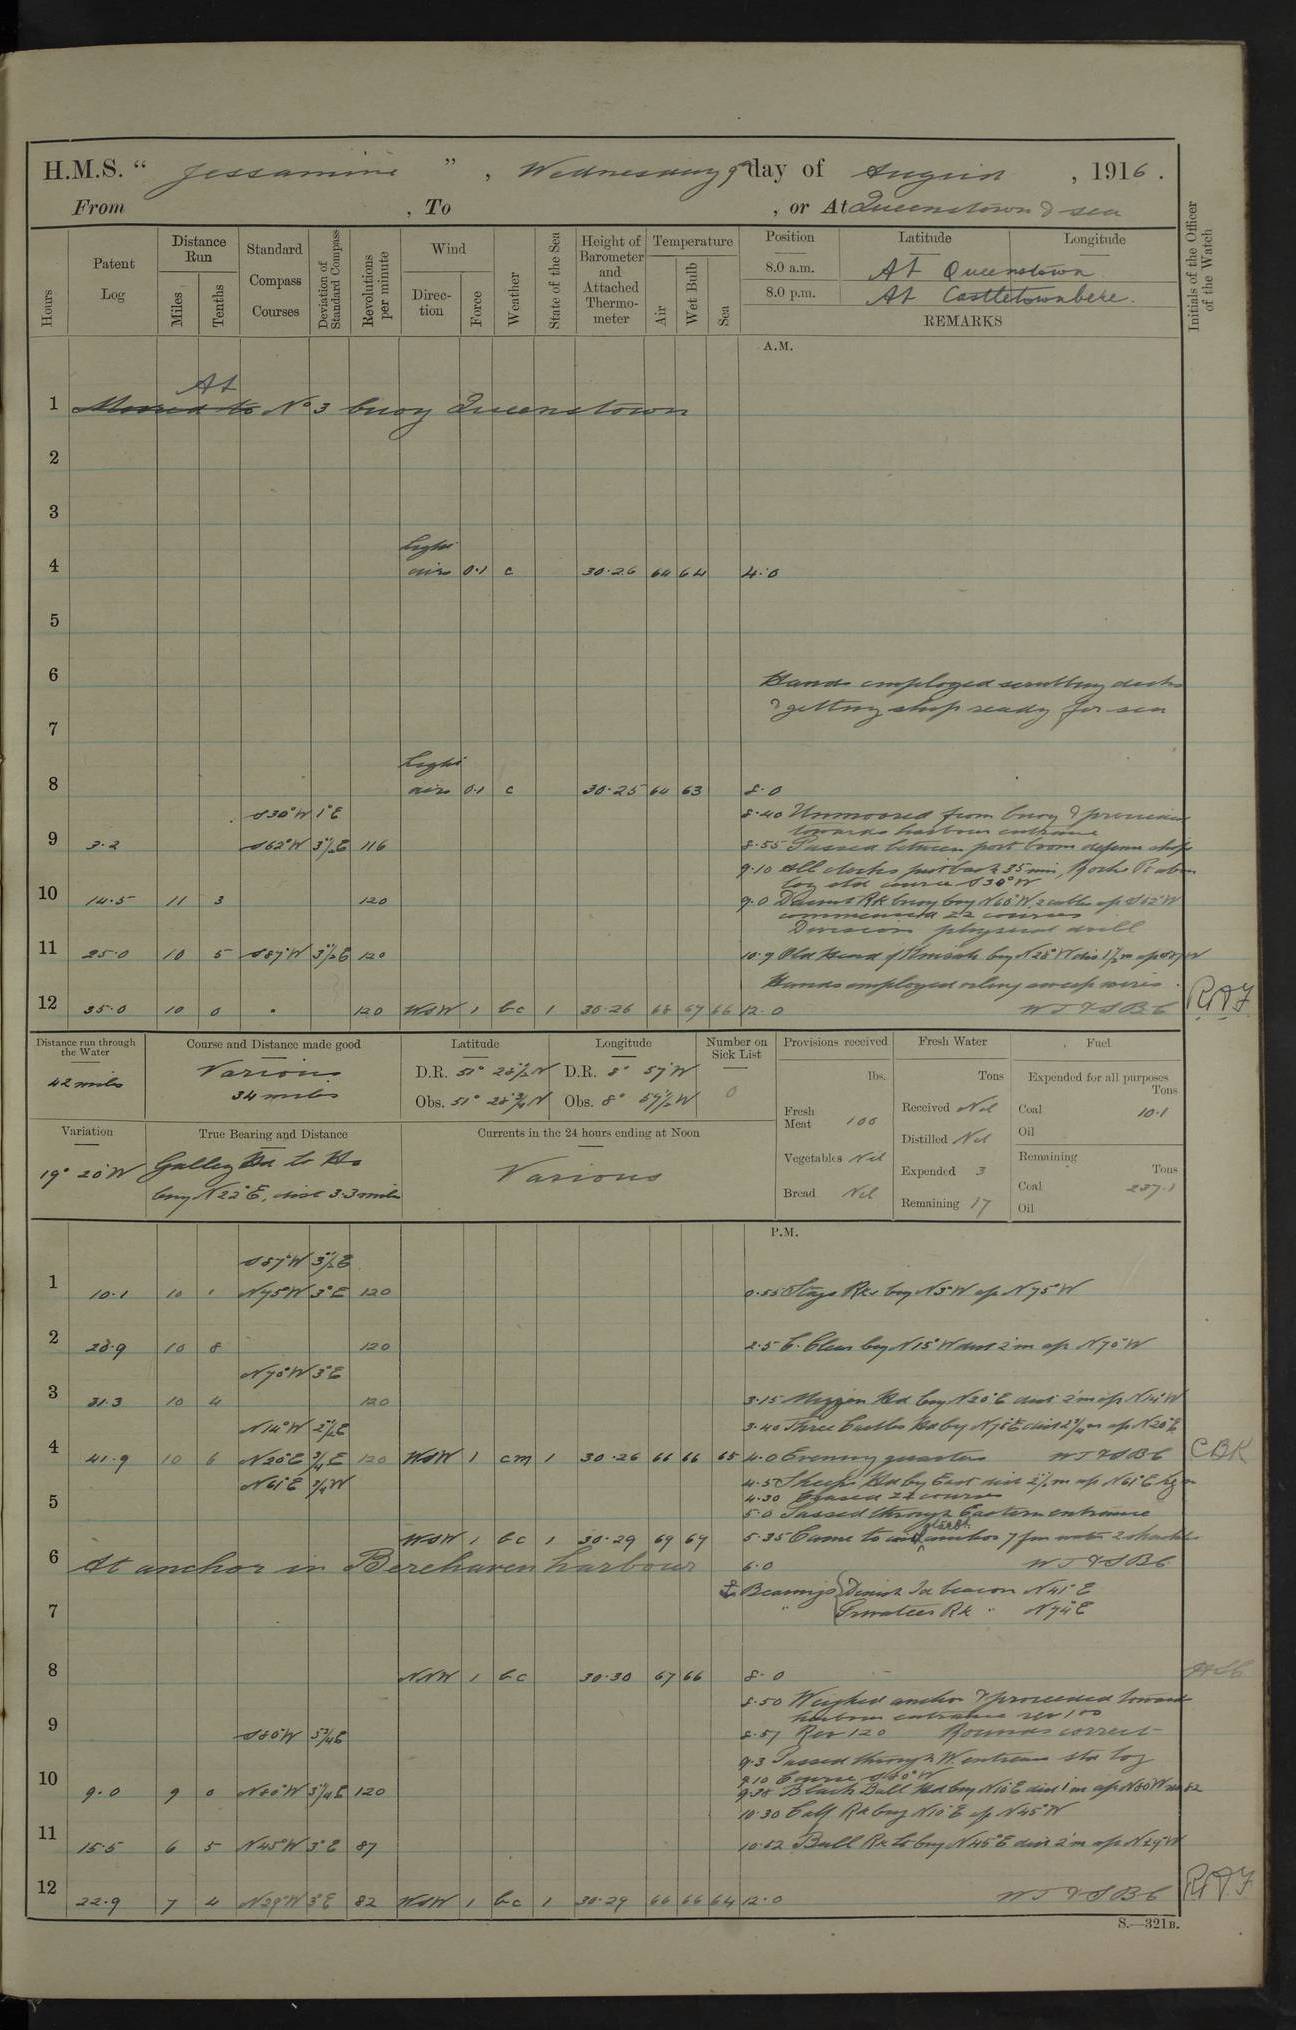 H.M.S. " Jessamine ", Wednesday 9th day of August , 1916.
From , To , or At Queenstown & sea
Hours
Patent Log
Distance Run
Miles
Tenths
Standard Compass Courses
Deviation of Standard Compass
Revolutions per minute
Wind
Direction
Force
Weather
State of the Sea
Height of Barometer and Attached Thermometer
Temperature
Air
Wet Bulb
Sea
Position
Latitude
Longitude
8.0 a.m. At Queenstown
8.0 p.m. At Castletownbere.
REMARKS
Initials of the Officer of the Watch
A.M.
At
1 Moored to No 3 buoy Queenstown
2
3
Light
4 airs 0.1 c 30.26 64 64 4.0
5
6 Hands employed scrubbing decks
& getting ship ready for sea
7
Light
8 airs 0.1 c 30.25 64 63 8.0
S30°W 1°E 8.40 Unmoored from buoy & proceeded
towards harbour entrance
9 3.2 S62°W 3½°E 116 8.55 Passed between port boom defence ships
9.10 All clocks put back 35 min, Roche Pt abm
log std course S30°W
10 14.5 11 3 120 9.0 Daunt Rk buoy brg N60°W 2 cables a/c S62°W
commenced ZZ courses
Division physical drill
11 25.0 10 5 S87°W 3½°E 120 10.9 Old Head of Kinsale brg N28°W dis 1½ m a/c S87°W
Hands employed oiling sweep wires.
12 35.0 10 0 120 WSW 1 bc 1 30.26 68 67 66 12.0 WT & SBC RAF
Distance run through the Water
42 miles
Course and Distance made good
Various
34 miles
Latitude
D.R. 51° 28½'N
Obs. 51° 28¾'N
Longitude
D.R. 8° 57'W
Obs. 8° 57½'W
Number on Sick List
0
Provisions received
lbs.
Fresh Meat 100
Vegetables Nil
Bread Nil
Fresh Water
Tons
Received Nil
Distilled Nil
Expended 3
Remaining 17
Fuel
Expended for all purposes
Tons
Coal 10.1
Oil
Remaining
Tons
Coal 237.1
Oil
Variation
19° 20'W
True Bearing and Distance
Galley Hd Lt Ho
brg N22°E, dist 3.3 miles
Currents in the 24 hours ending at Noon
Various
P.M.
S87°W 3½°E
1 10.1 10 1 N75°W 3°E 120 0.55 Stags Rks brg N3°W a/c N75°W
2 20.9 10 8 120 2.5 C. Clear brg N15°W dist 2'm a/c N70°W
N70°W 3°E
3 31.3 10 4 120 3.15 Mizzen Hd brg N20°E dist 2'm a/c N14°W
N14°W 2½°E 3.40 Three Castles Hd brg N75°E dist 2¾m a/c N20°E
4 41.9 10 6 N20°E ¾°E 120 WSW 1 cm 1 30.26 66 66 65 4.0 Evening quarters WT & SBC CBR
N61°E ¾°W 4.5 Sheeps Hd brg East dist 2½m a/c N61°E
4.30 Ceased ZZ courses
5 5.0 Passed through Eastern entrance
starbd
WSW 1 bc 1 30.29 69 67 5.35 Came to with anchor 7 fm water 2 shackles
6 At anchor in Berehaven harbour 6.0 WT & SBC
Bearings Dinish Id beacon N41°E
7 " Privateer Rk " N74°E
8 NNW 1 bc 30.30 67 66 8.0
8.50 Weighed anchor & proceeded towards
harbour entrance rev 100
9 S80°W 3¾°E 8.57 Rev 120 Rounds correct
9.3 Passed through W. entrance std log
9.10 Course S80°W
10 9.0 9 0 N80°W 3¼°E 120 9.38 Black Ball Hd brg N10°E dist 1'm a/c N80°W 82
10.30 Calf Rk brg N10°E a/c N45°W
11 15.5 6 5 N45°W 3°E 87 10.52 Bull Rk Lt brg N45°E dist 2'm a/c N29°W
12 22.9 7 4 N29°W 3°E 82 WSW 1 bc 1 30.29 66 66 64 12.0 WT & SBC RAF
S.—321B.